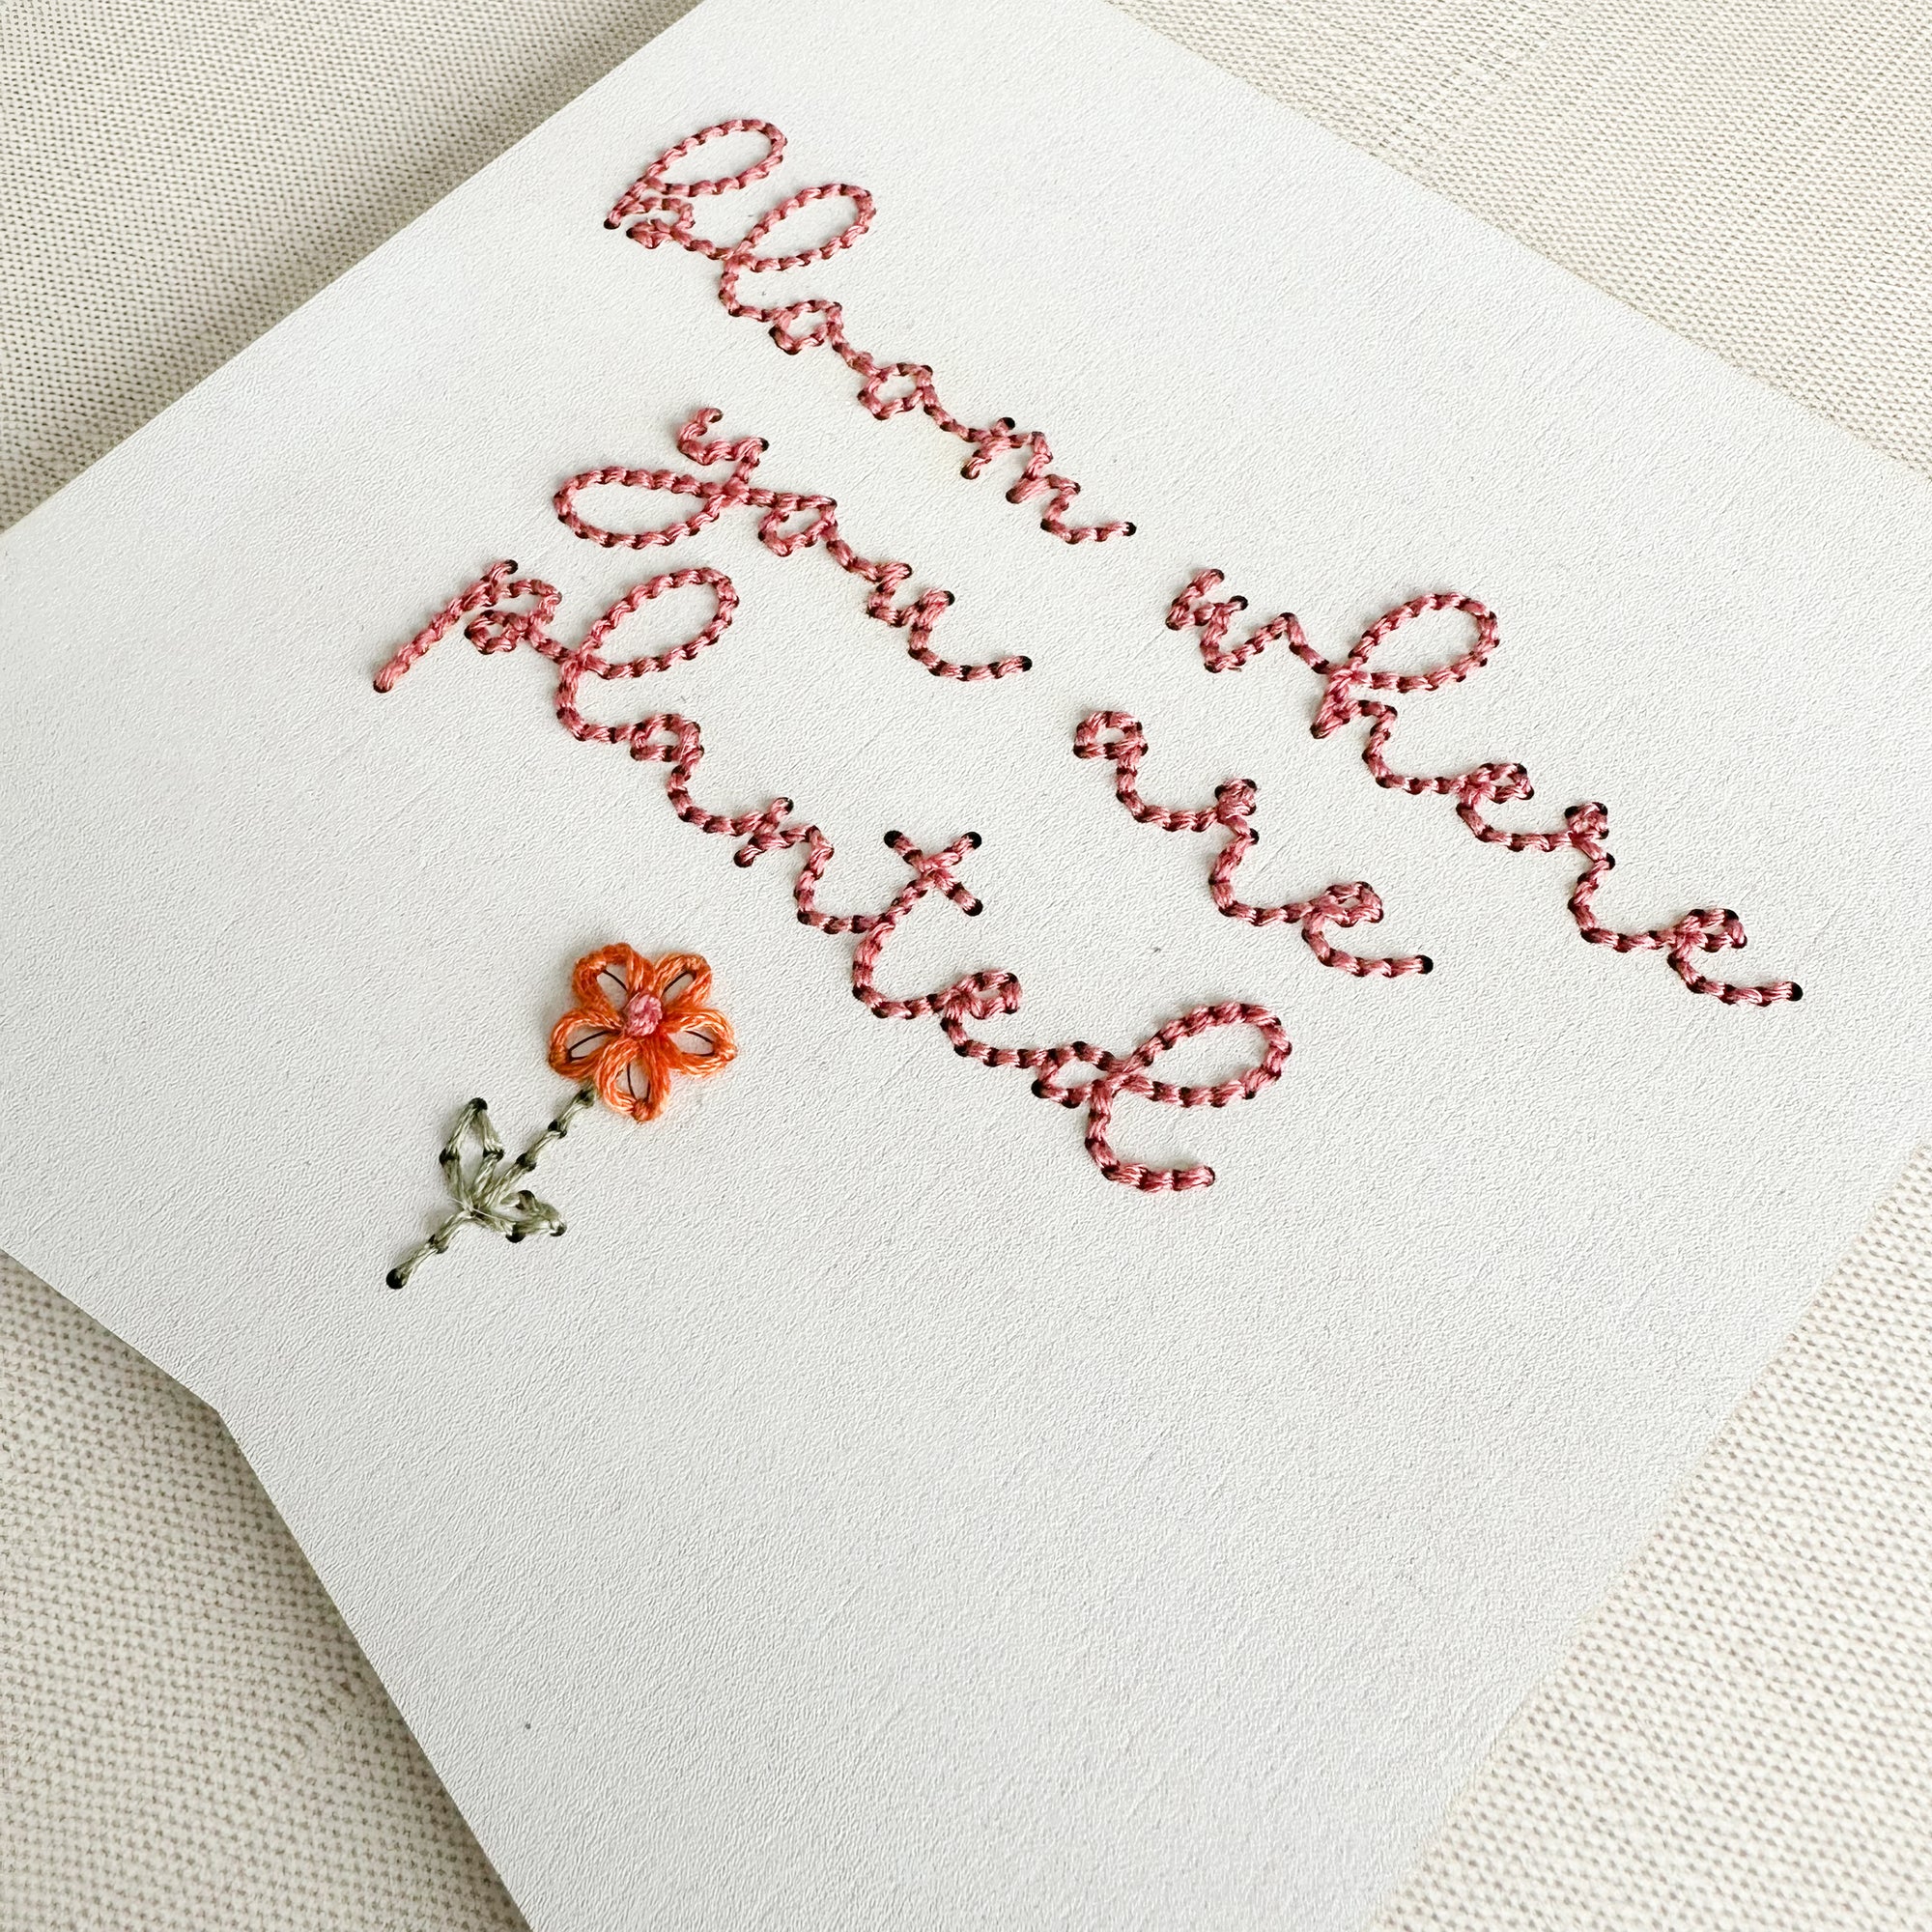 bloom where
you are
planted